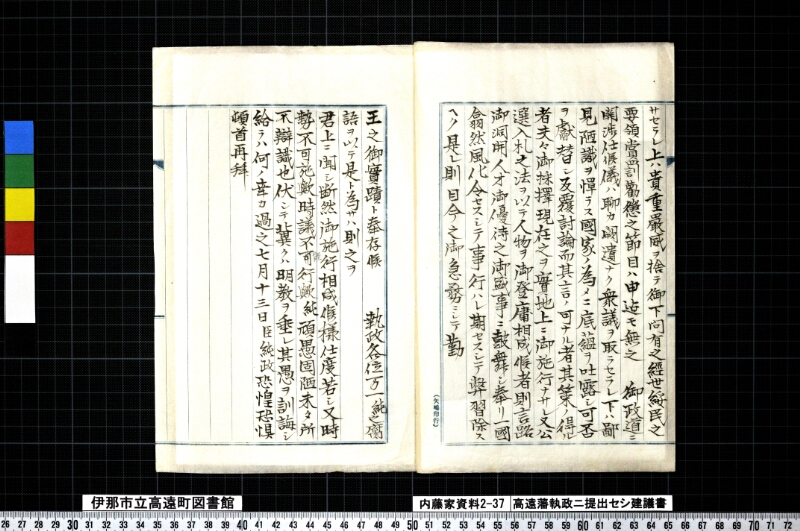 サセラレ上ハ貴重嚴威ヲ捨テ御下問有之經世綏民之
要領賞罰勸懲之節目ハ申迄モ無之 御政道ニ
關渉仕候儀ハ聊カ闕遺ナク衆議ヲ取ラセラレ下ハ鄙
見陋識ヲ憚ラス國家ノ為メニ底蘊ヲ吐露シ可否
ヲ獻替シ反覆討論而其言ノ可ナル者其策ノ得ル
者夫々御採擇現在之ヲ實地上ニ御施行ナサレ又公
選入札之法ヲ以テ人物ヲ御登庸相成候者則言路
御洞開人才御優待之御盛事ニ鼓舞シ奉リ一國
翕然風化令セスシテ事行ハレ期セスシテ弊習除ス
ヘク是レ則目今之御急務ニシテ勤
王之御實蹟ト奉存候 執政各位万一純之庸
語ヲ以テ是ト為サハ則之ヲ
君上ニ聞シ断然御施行相成候樣仕度若シ又時
勢不可施歟時議不可行歟純頑愚固陋未タ所
不辯識也伏シテ冀クハ明教ヲ垂レ其愚ヲ訓誨シ
給ラハ何ノ幸カ過之七月十三日臣純政恐惶恐懼
頓首再拜
(矢嶋印行)
伊那市立高遠町図書館
内藤家資料2-37 高遠藩執政ニ提出セシ建議書